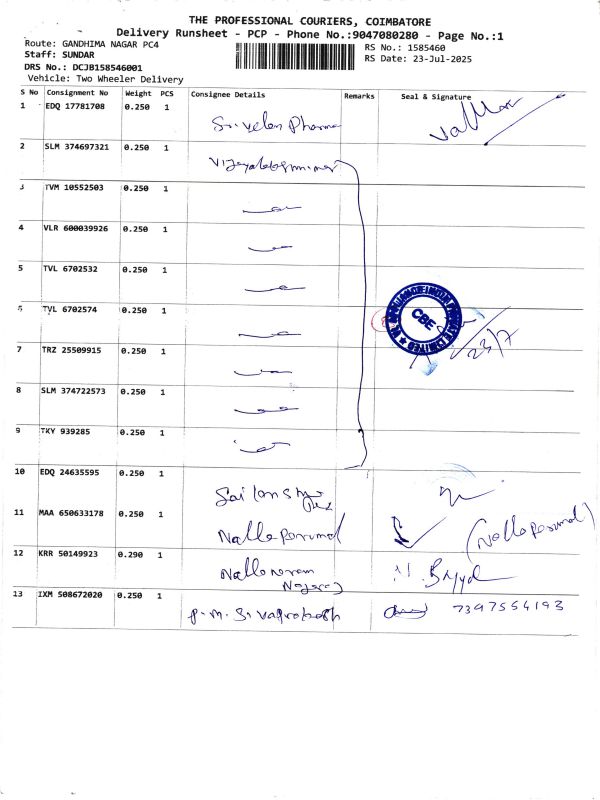 THE PROFESSIONAL COURIERS, COIMBATORE
Delivery Runsheet - PCP - Phone No.:9047080280 - Page No.:1
Route: GANDHIMA NAGAR PC4
RS No.: 1585460
Staff: SUNDAR
RS Date: 23-Jul-2025
DRS No.: DCJB158546001
Vehicle: Two Wheeler Delivery
S No Consignment No Weight PCS Consignee Details Remarks Seal & Signature
1 EDQ 17781708 0.250 1
Sri velan Pharma
2 SLM 374697321 0.250 1
3 TVM 10552503 0.250 1
4 VLR 600039926 0.250 1
5 TVL 6702532 0.250 1
6 TVL 6702574 0.250 1
CBE
23/7
7 TRZ 25509915 0.250 1
8 SLM 374722573 0.250 1
9 TKY 939285 0.250 1
10 EDQ 24635595 0.250 1
11 MAA 650633178 0.250 1
Nalleperumal (Nalleperumal)
12 KRR 50149923 0.290 1
13 IXM 508672020 0.250 1
P.M. Sivaprakash 7397554193